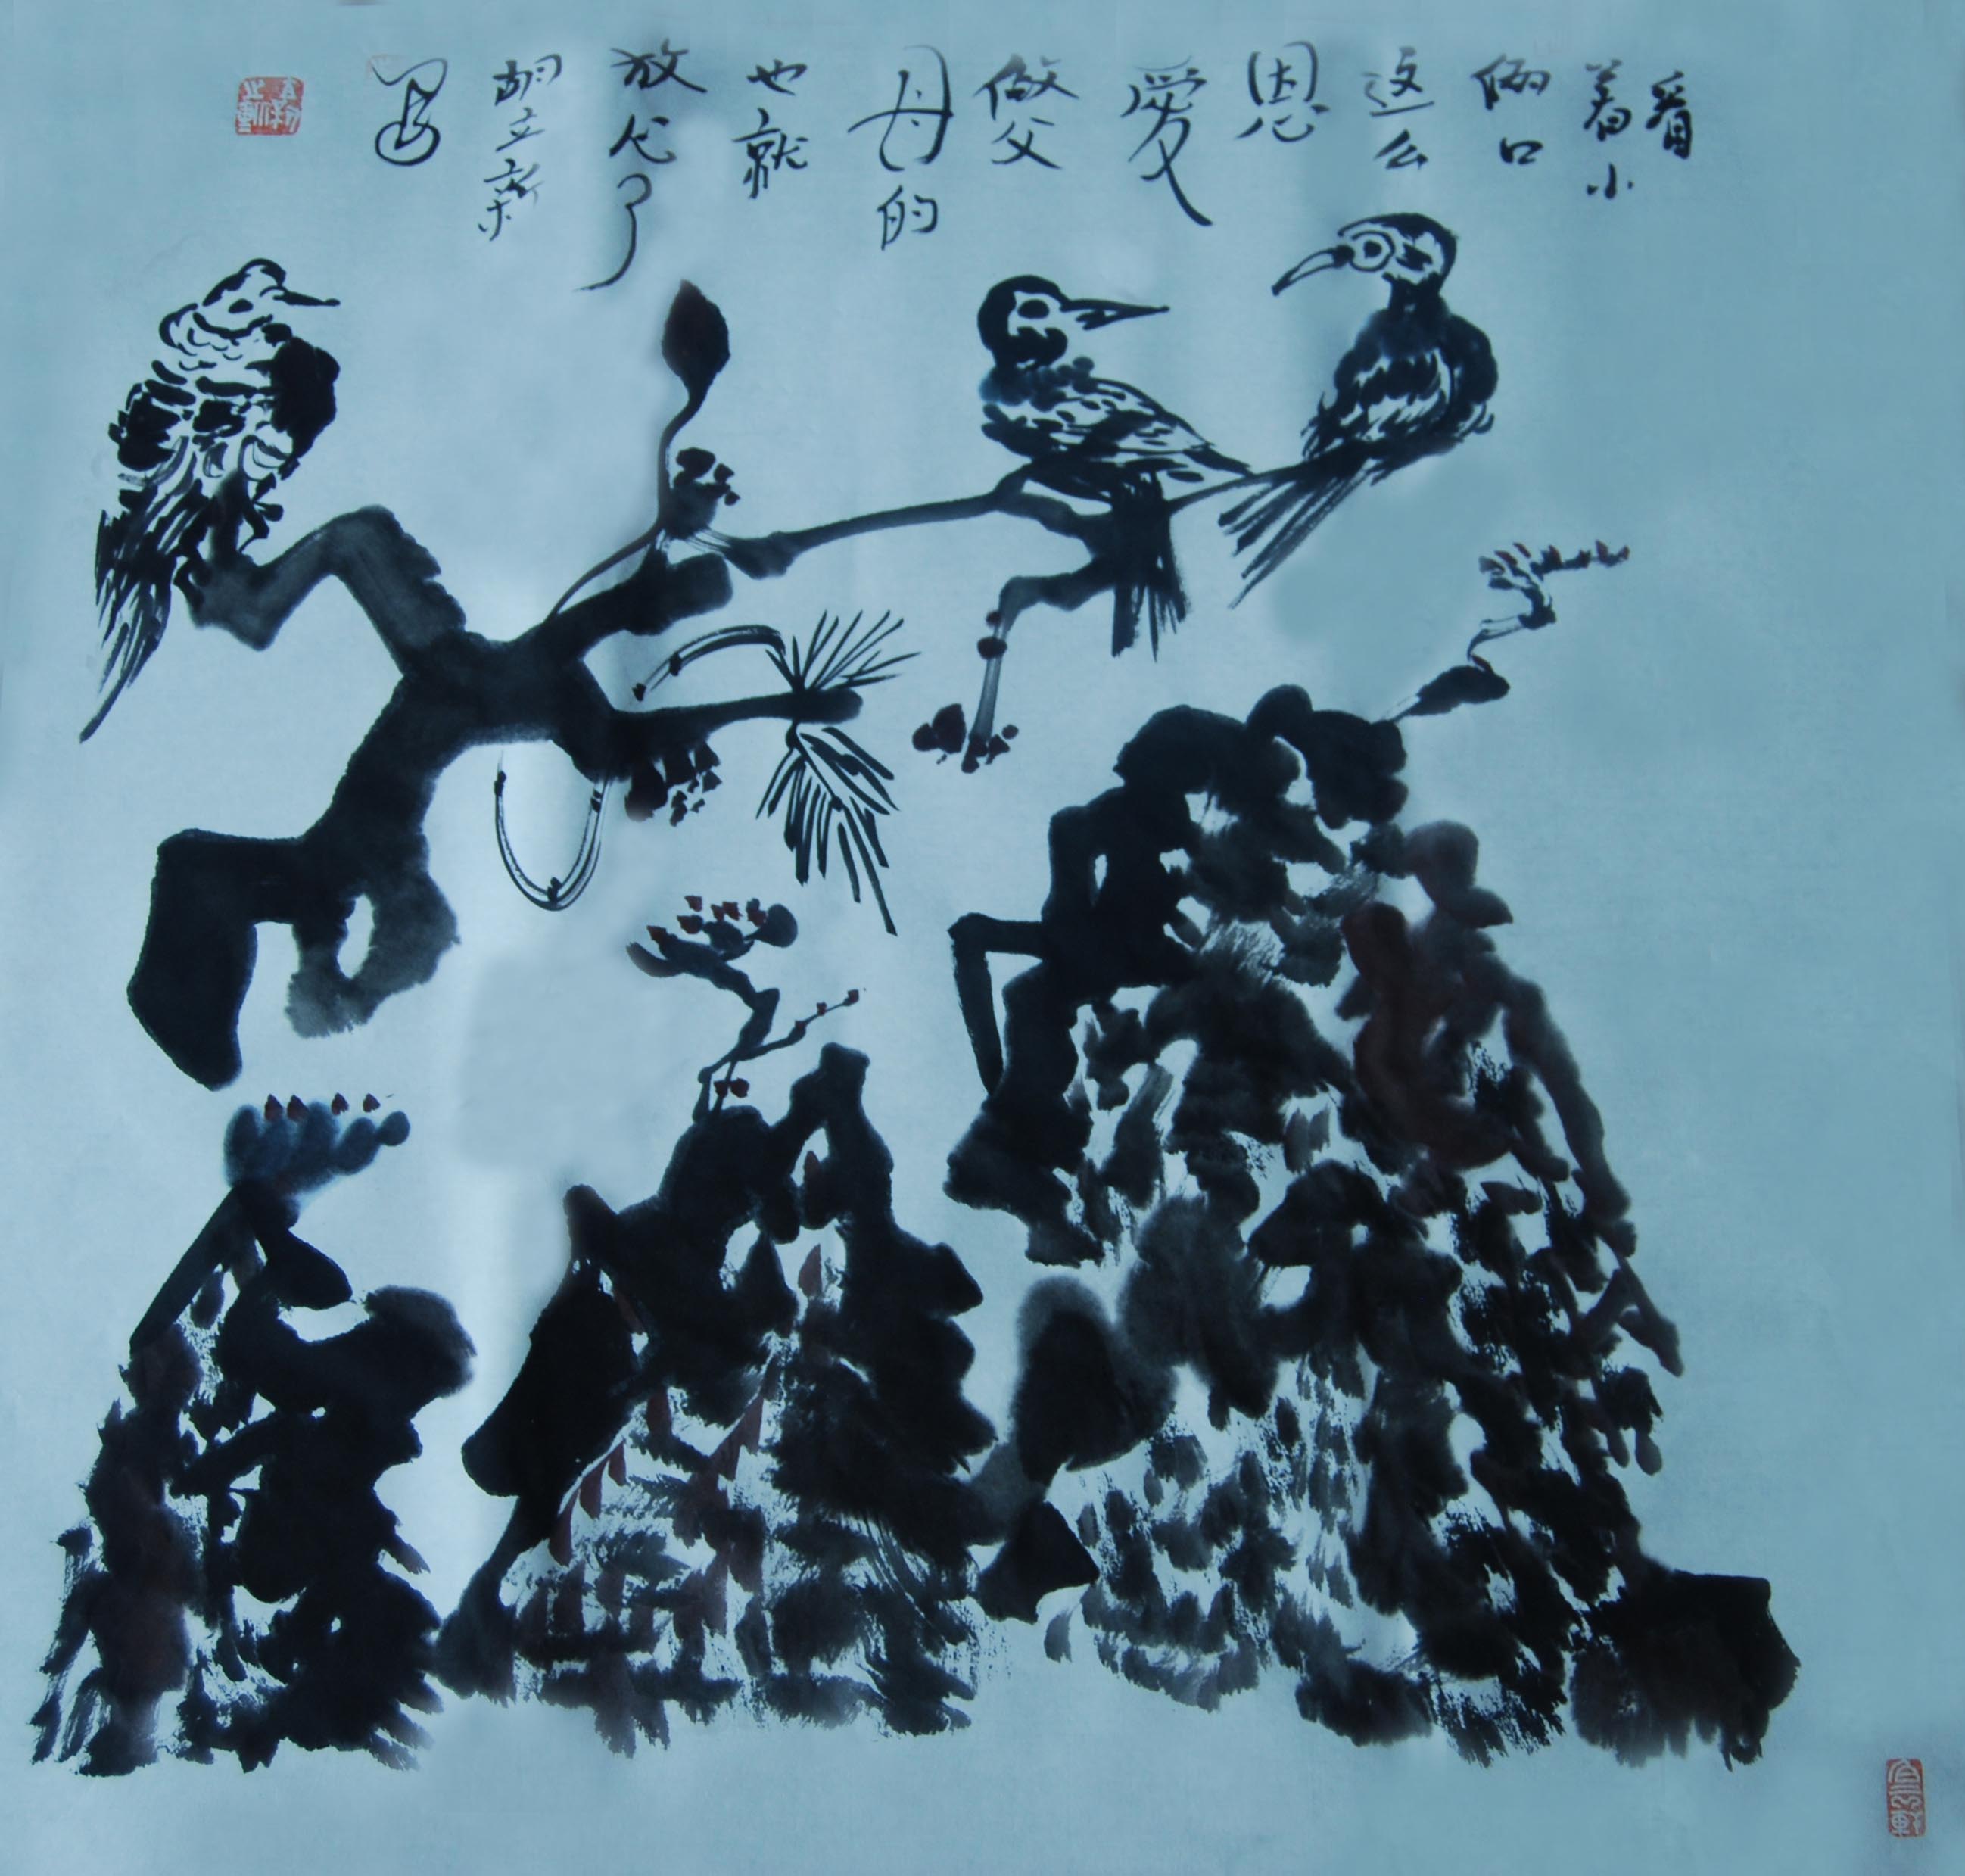 看
着小
俩口
这么
恩
愛
做父
母的
也就
放心了
胡立新
写